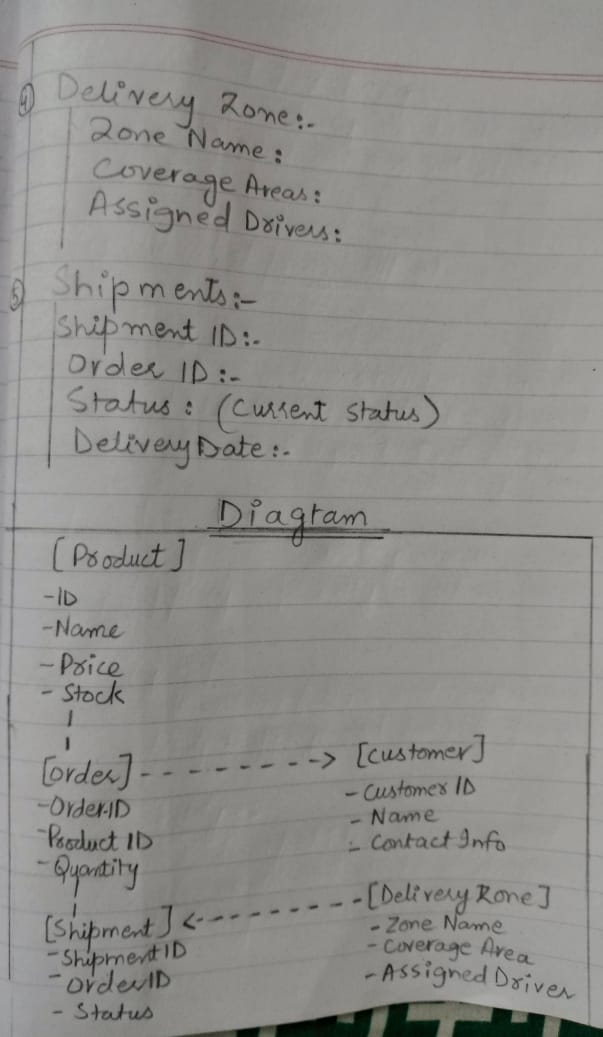 ④ Delivery Zone:-
Zone Name:
Coverage Areas:
Assigned Drivers:
⑤ Shipments:-
Shipment ID:-
Order ID:-
Status: (Current Status)
Delivery Date:-
Diagram
[Product]
-ID
-Name
-Price
- Stock
[Order] --------> [Customer]
-Order.ID
- Customer ID
-Product ID
- Name
-Quantity
- Contact Info
[Shipment] <-------- [Delivery Zone]
-Shipment ID
- Zone Name
-Order ID
- Coverage Area
- Status
- Assigned Driver